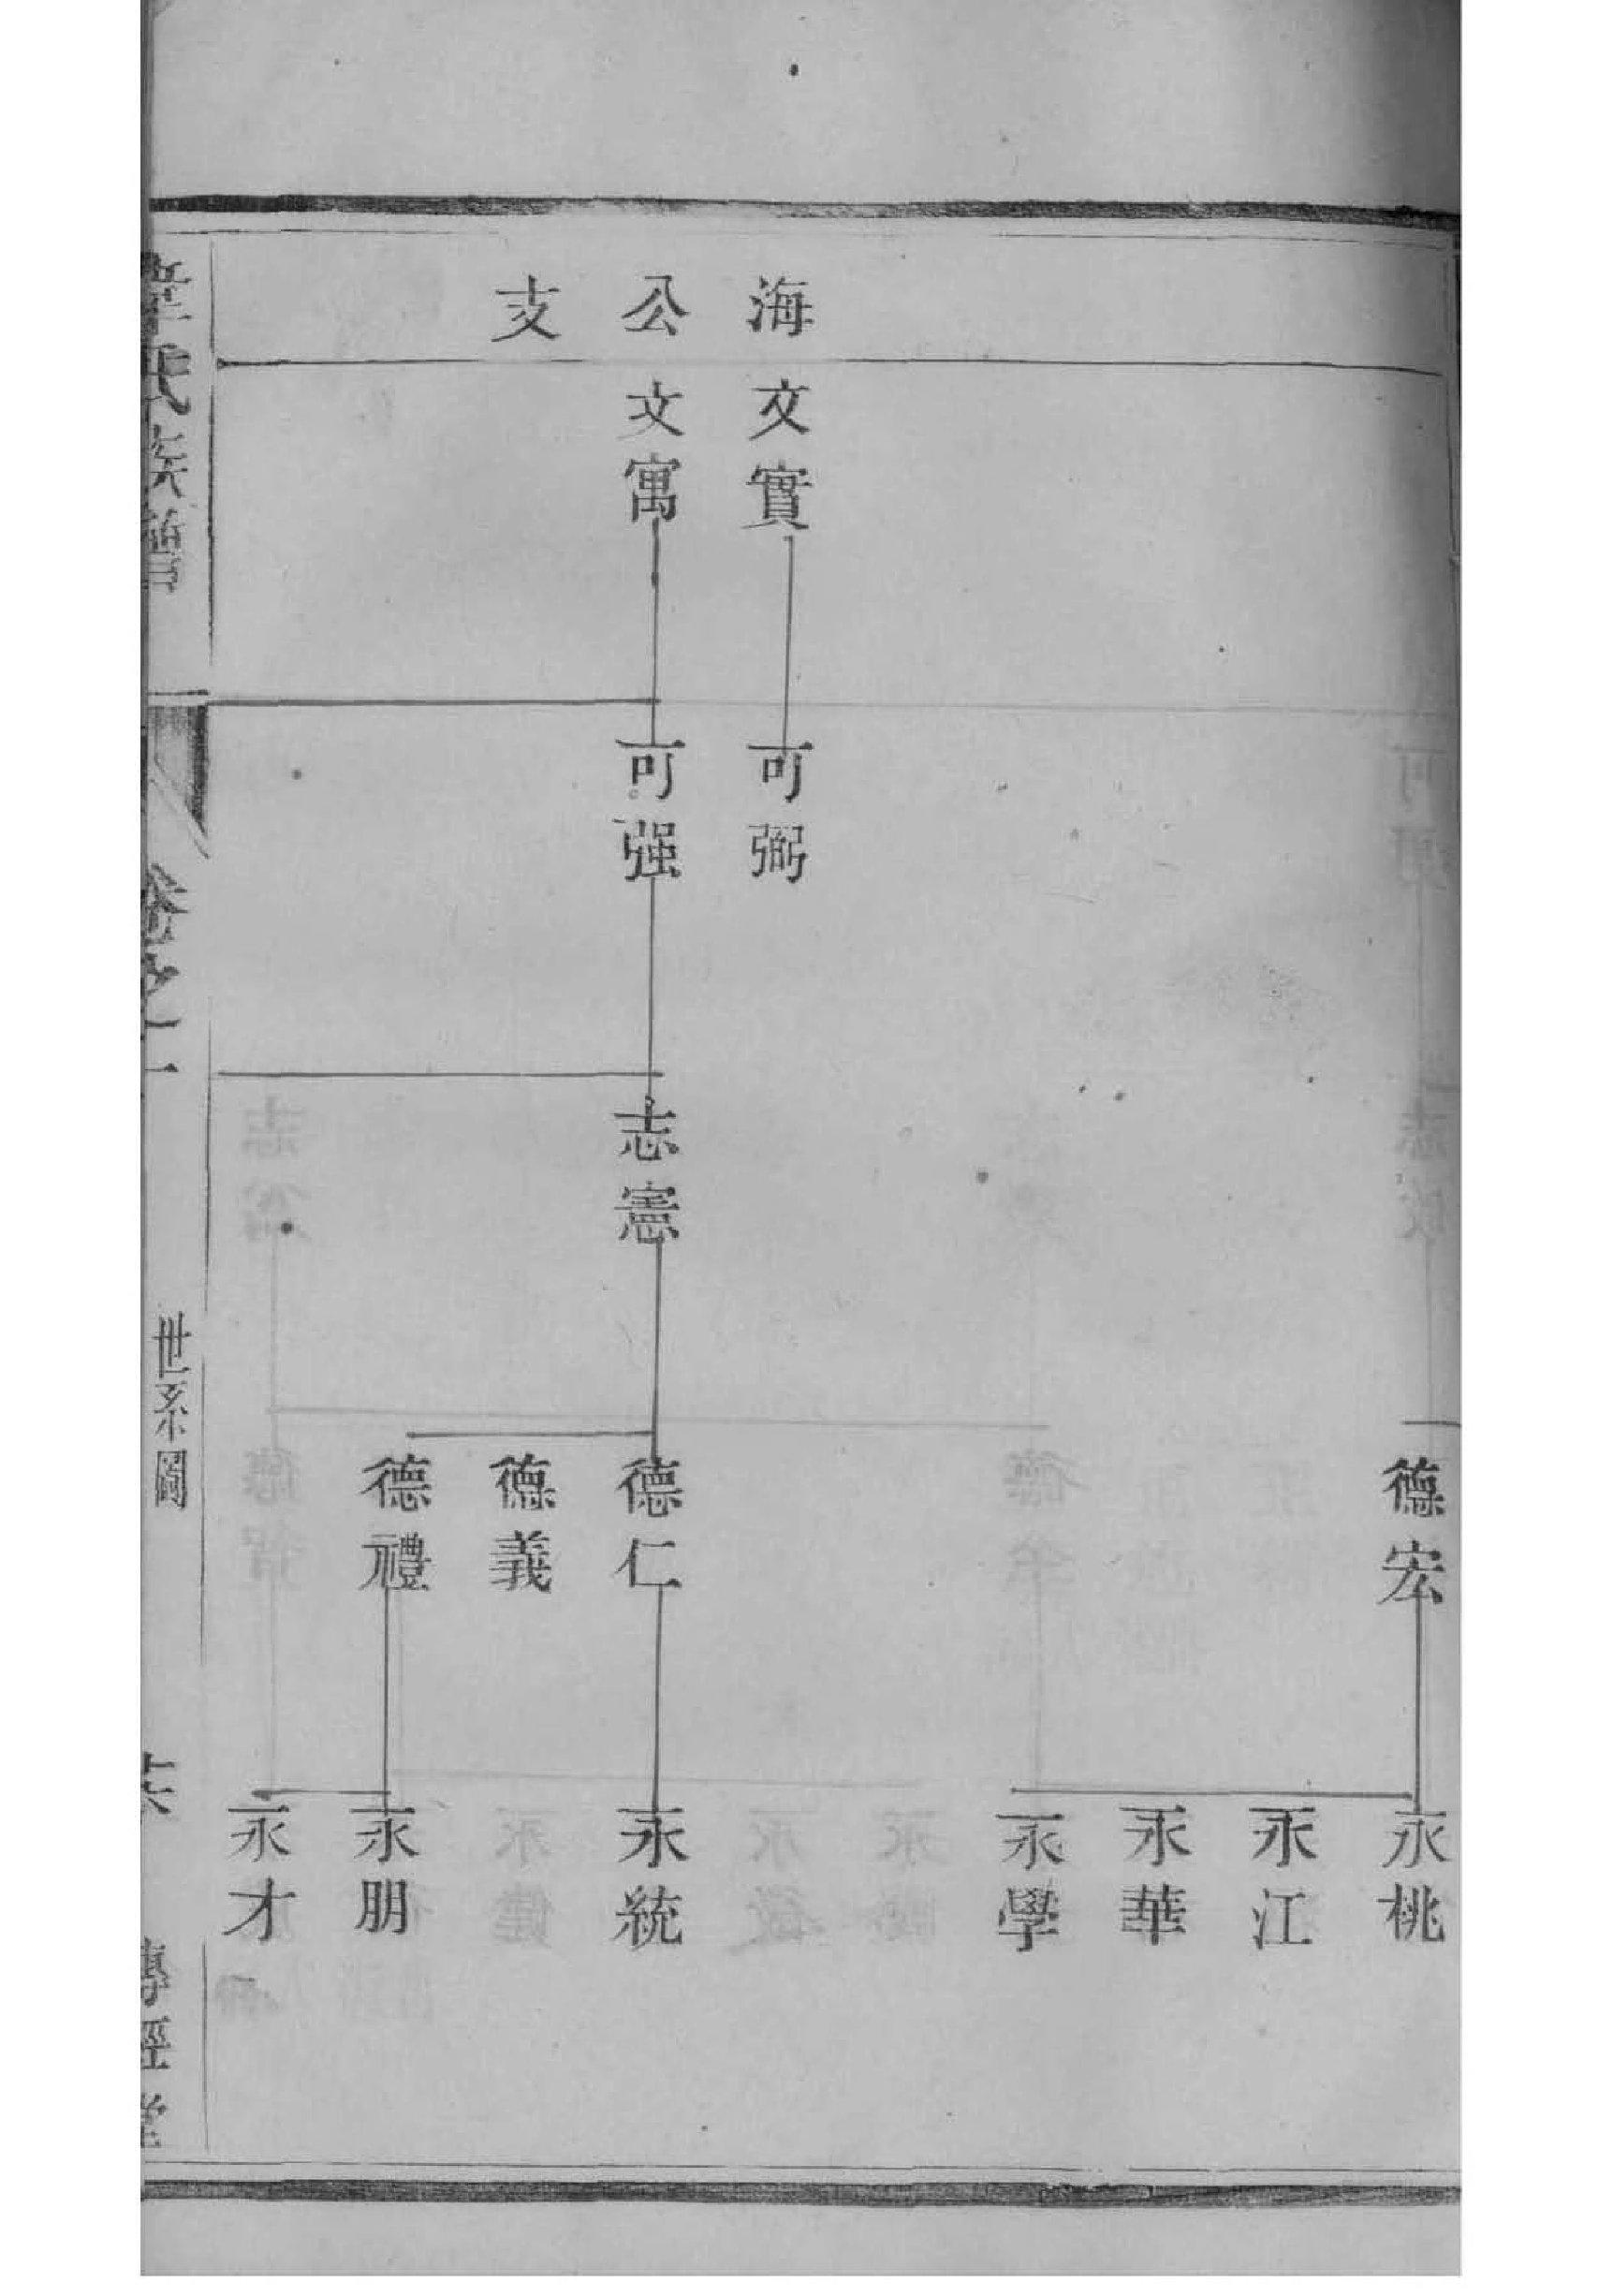 海公支
文實
文寓
可弼
可强
志憲
德宏
德仁
德義
德禮
永桃
永江
永華
永學
永統
永朋
永才
韋氏族譜
卷之一
世系圖
傳經堂